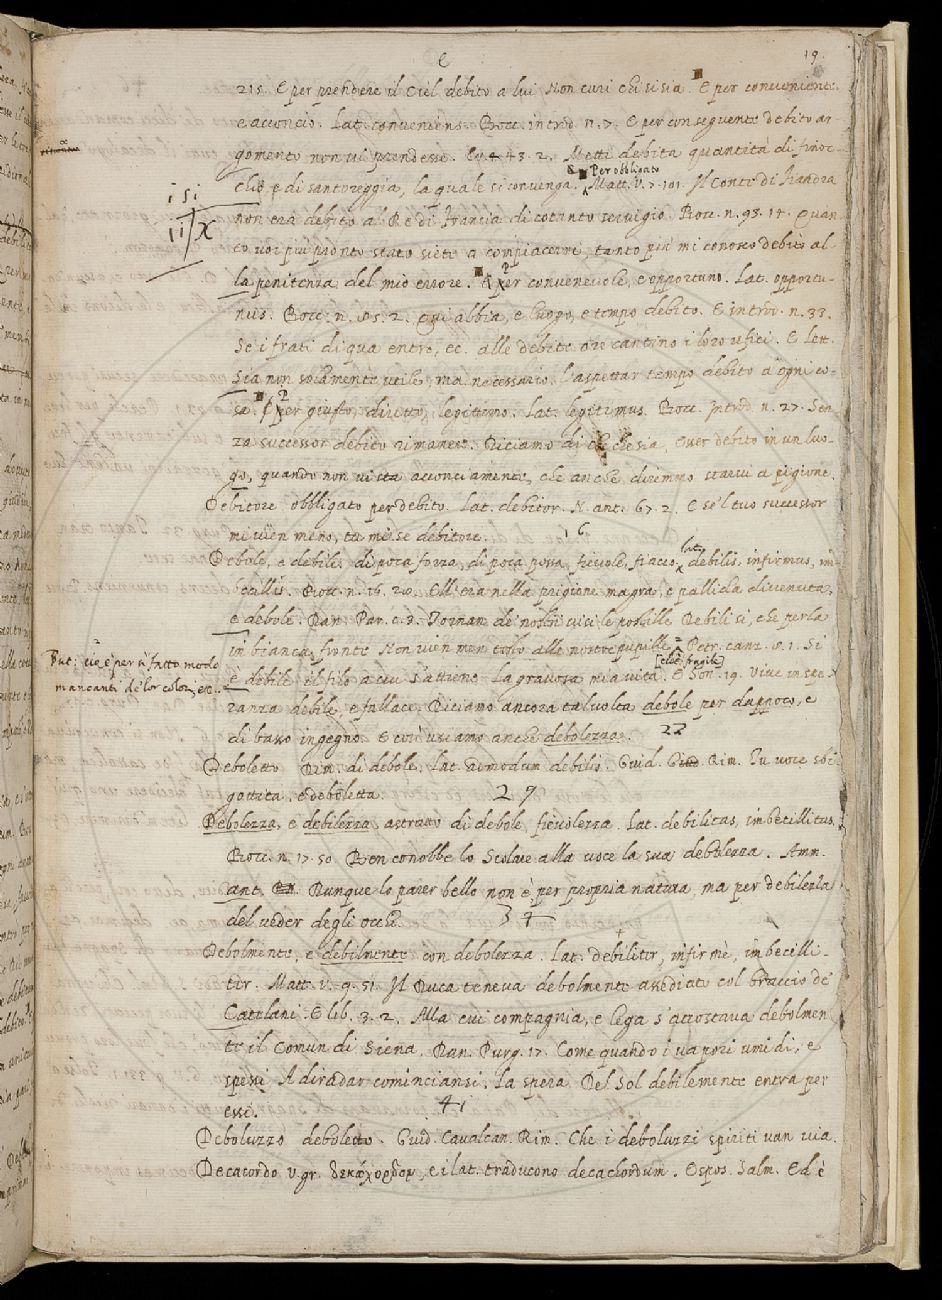 E
19
215. E per prendere il Ciel debito a lui Non curi chi si sia. E per conveniente
e acconcio. Lat. conveniens. Bocc. introd. n. 7. E per conseguente debito ar-
gomento non vi prendesse. 43. 2. Metti debita quantità di finoc-
chio, e di santoreggia, la quale si convenga. Per obbligato Matt. V. 7. 101. Il Conte di Fiandra
non era debito al Re di Francia di cotanto servigio. Bocc. n. 98. 14. Quan-
to voi più pronto stato siete a compiacermi, tanto più mi conosco debito al-
la penitenza del mio errore. E per convenevole, e opportuno. Lat. opportu-
nus. Bocc. n. 85. 2. Qui abbia, e luogo, e tempo debito. E introd. n. 33.
Se i frati di qua entro, ec. alle debite ore cantino i loro ufici. E lett.
Sia non solamente utile, ma necessario l'aspettar tempo debito a ogni co-
sa. E per giusto, diritto, legittimo. Lat. legitimus. Bocc. Introd. n. 27. Sen-
za successor debito rimanere. Diciamo di chiesia, Over debito in un luo-
go, quando non ci sta acconciamente, che anche diremmo starvi a pigione.
Debitore obbligato per debito. Lat. debitor. N. ant. 67. 2. E se'l tuo successor
mi vien meno, tu mi se debitore. 16
Debole, e debile, di poca forza, di poca possa, fievole, fiacco, lat. debilis, infirmus, im-
becillis. Bocc. n. 16. 28. Ell'era nella prigione magra, e pallida divenuta,
e debole. Dan. Par. c. 3. Tornan de' nostri visi le postille Debili sì, che perla
in bianca fronte Non vien men tosto alle nostre pupille. Petr. canz. 1. Si
è debile [cioè fragile] il filo a cui s'attiene La gravosa mia vita. E Son. 19. Vive in spe-
ranza debile, e fallace. Diciamo ancora talvolta debole per dappoco, e
di basso ingegno. E così usiamo anche debolezza. 22
But: cioè per sì fatto modo
mancanti de' lor colori, etc.
Deboletto Dim. di debole. Lat. admodum debilis. Guid. G. Rim. Tu voce sbi-
gottita, e deboletta. 27
Debolezza, e debilezza, astratto di debole, fievolezza. Lat. debilitas, imbecillitas.
Bocc. n. 17. 50 Ben conobbe lo Scolare alla voce la sua debolezza. Amm.
ant. Dunque lo parer bello non è per propria natura, ma per debilezza
del veder degli occhi. 34
Debolmente, e debilmente con debolezza. Lat. debiliter, infirmè, imbecilli-
ter. Matt. V. 9. 51. Il Duca teneva debolmente assediato col braccio de'
Catelani. E lib. 3. 2. Alla cui compagnia, e lega s'accostava debolmen-
te il Comun di Siena. Dan. Purg. 17. Come quando i vapori umidi, e
spessi A diradar cominciansi, la spera Del Sol debilemente entra per
essi. 41
Deboluzzo deboletto. Guid. Cavalcan. Rim. Che i deboluzzi spiriti van via.
Decacordo v. gr. δεκάχορδον, e i lat. traducono decachordum. Espos. Salm. Ed è